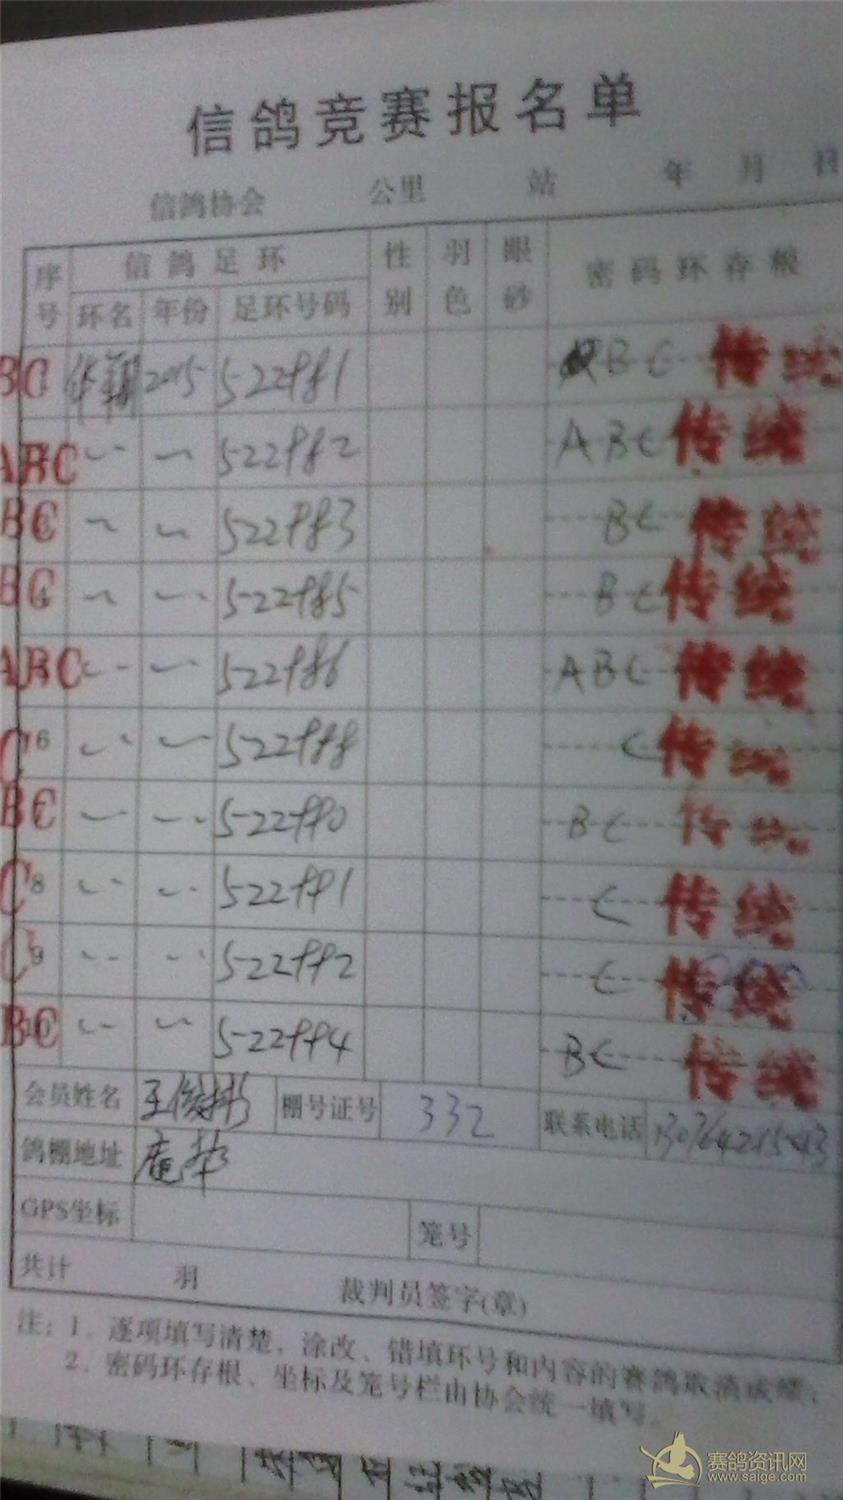 信鸽竞赛报名单
信鸽协会 公里 站 年 月 日
序号 信鸽足环 性别 羽色 眼砂 密码环存根
环名 年份 足环号码
BC 华翔 2015 522981 BC 传统
ABC 522982 ABC 传统
BC 522983 BC 传统
BC 522985 BC 传统
ABC 522986 ABC 传统
C 6 522988 C 传统
BC 522990 BC 传统
C 8 522991 C 传统
C 9 522992 C 传统
BC 522994 BC 传统
会员姓名 王俊 棚号证号 332 联系电话
鸽棚地址
GPS坐标 笼号
共计 羽 裁判员签字(章)
注：1．逐项填写清楚，涂改、错填环号和内容的赛鸽取消成绩；
2．密码环存根、坐标及笼号栏由协会统一填写。
赛鸽资讯网
www.saige.com